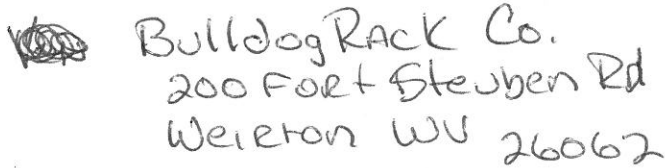 Bulldog Rack Co.
200 Fort Steuben Rd
Weirton WV 26062